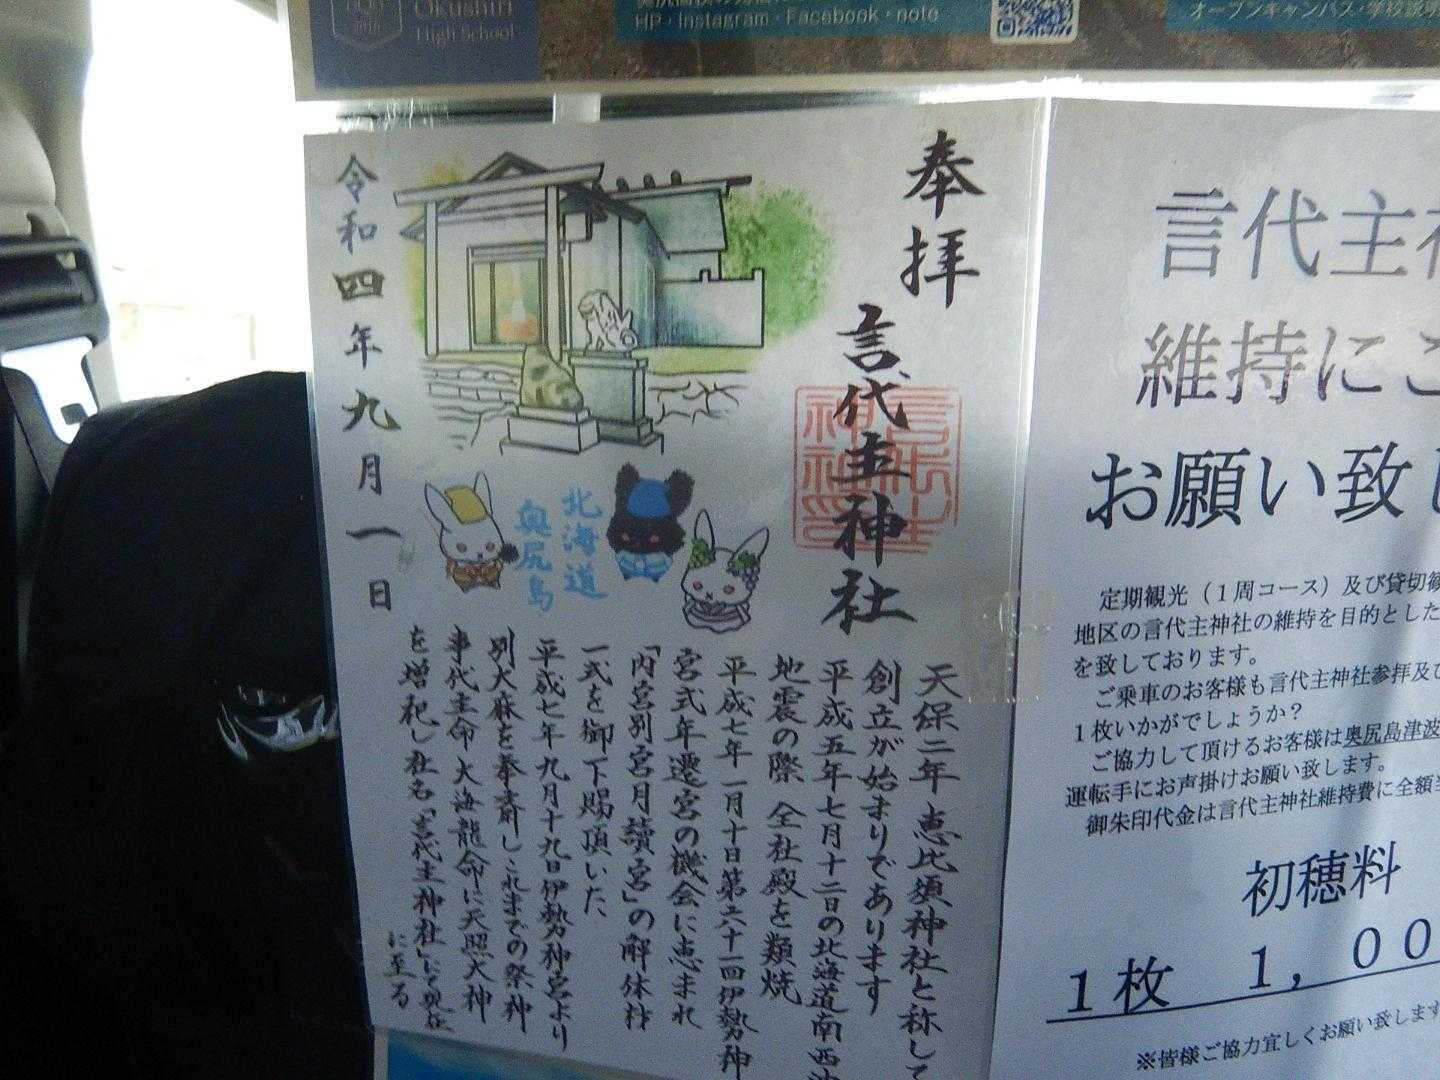 Okushiri
High School
HP・Instagram・Facebook・note
オープンキャンパス・学校説明
奉拝
言代主神社
令和四年九月一日
北海道
奥尻島
天保二年 恵比須神社と称して
創立が始まりであります
平成五年七月十二日の北海道南西沖
地震の際 全社殿を類焼
平成七年一月十日第六十一回伊勢神
宮式年遷宮の機会に恵まれ
「内宮別宮月讀宮」の解体材
一式を御下賜頂いた
平成七年九月十九日伊勢神宮より
別大麻を奉斎しこれまでの祭神
事代主命 大海龍命に天照大神
を増祀し社名「言代主神社」にて現在
に至る
言代主神
維持にご
お願い致し
定期観光（1周コース）及び貸切観
地区の言代主神社の維持を目的とした
を致しております。
ご乗車のお客様も言代主神社参拝及び
1枚いかがでしょうか？
ご協力して頂けるお客様は奥尻島津波
運転手にお声掛けお願い致します。
御朱印代金は言代主神社維持費に全額
初穂料
1枚 1，00
※皆様ご協力宜しくお願い致します